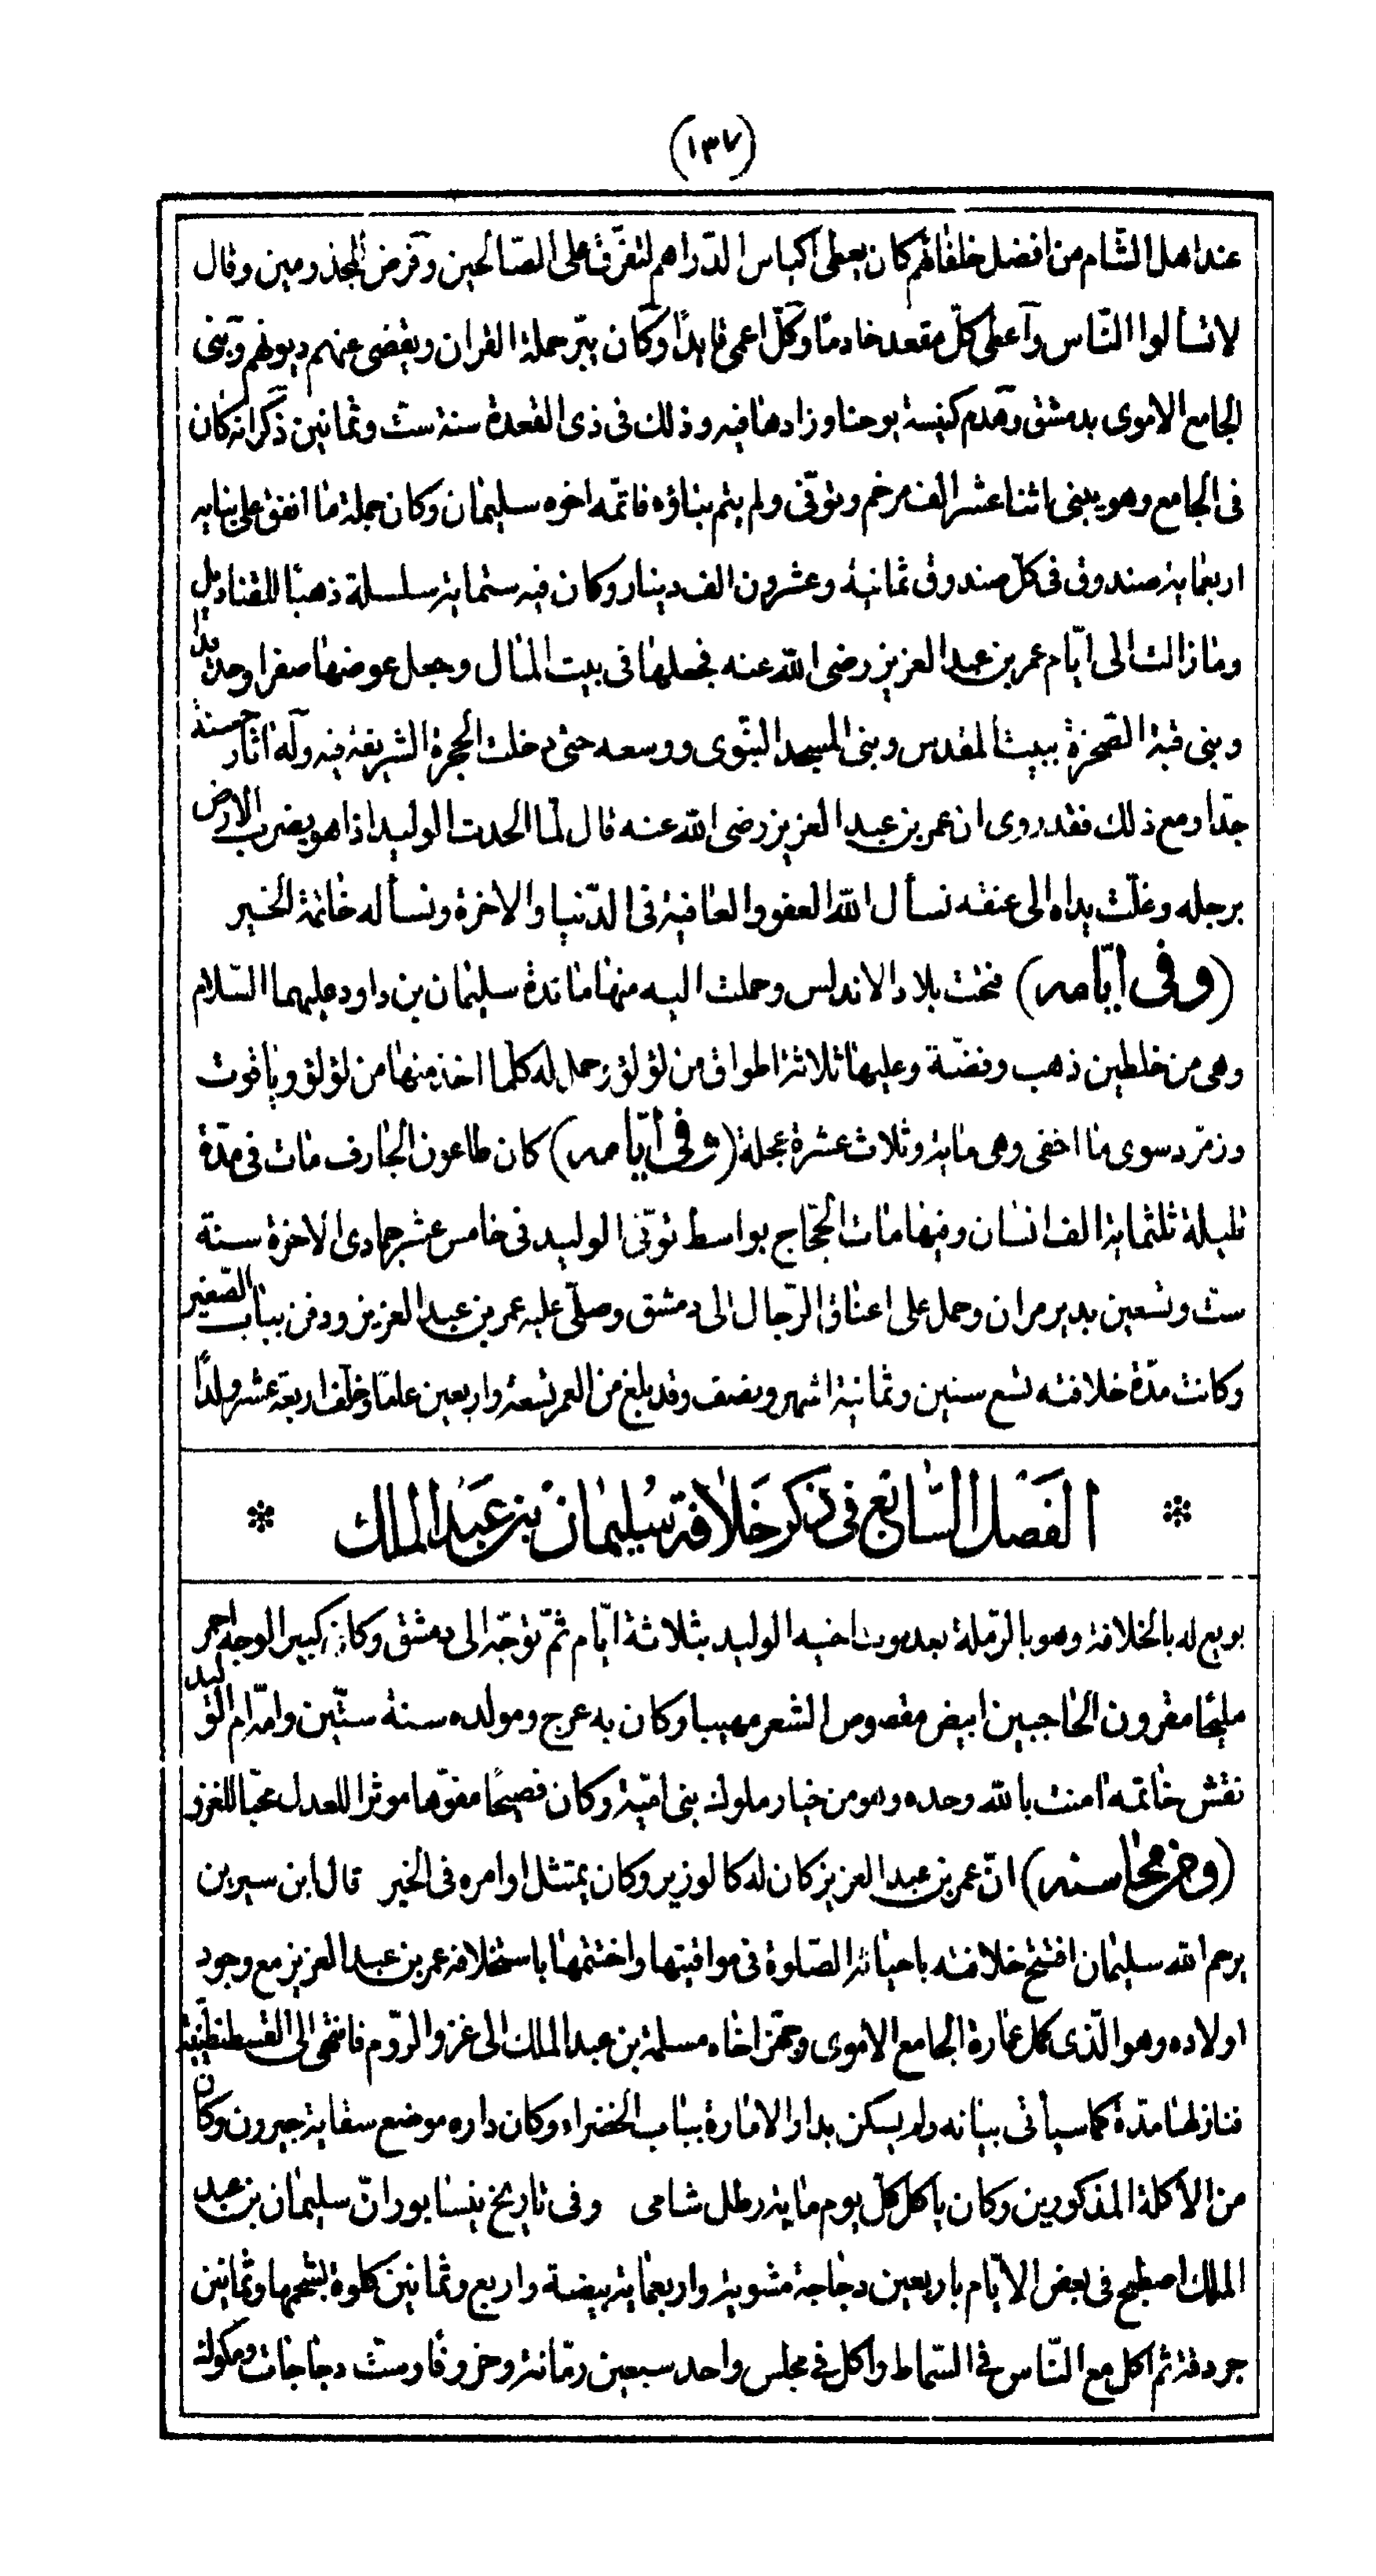 (١٣٧)
عند اهل الشّام من افضل خلفائهم كان يعطى اكياس الدّراهم لتفرّق على الصّالحين وفرض للمجذومين وقال
لا تسألوا النّاس وأعطى كلّ مقعد خادمًا وكلّ اعمى قايدًا وكان يبرّ حملة القران ويقضى عنهم ديونهم وبنى
الجامع الاموى بدمشق وهدم كنيسة يوحنا وزادها فيه وذلك فى ذى القعدة سنة ست وثمانين ذكر انه كان
فى الجامع وهو يبنى اثنا عشر الف مرخم وتوفّى ولم يتم بناؤه فاتمّه اخوه سليمان وكان جملة ما انفق على بنايه
اربعماية صندوق فى كلّ صندوق ثمانية وعشرون الف دينار وكان فيه ستماية سلسلة ذهبًا للقناديل
وما زالت الى ايّام عمر بن عبد العزيز رضى الله عنه فجعلها فى بيت المال وجعل عوضها صفرا وحديدا
وبنى قبة الصّخرة ببيت المقدس وبنى المسجد النبوى ووسعه حتى دخلت الحجرة الشريفة فيه وله اثار حسنة
جدّا ومع ذلك فقد روى ان عمر بن عبد العزيز رضى الله عنه قال لمّا الحدت الوليد اذا هو يضرب الارض
برجله وغلّت يداه الى عنقه نسأل الله العفو والعافية فى الدّنيا والاخرة ونسأله خاتمة الخير
(وفى ايّامه) فتحت بلاد الاندلس وحملت اليه منها مائدة سليمان بن داود عليهما السّلام
وهى من خلطين ذهب وفضّة وعليها ثلاثة اطواق من لؤلؤ وحمل له كلّما اخذ منها من لؤلؤ وياقوت
وزمرّد سوى ما اخفى وهى ماية وثلاث عشرة عجلة (وفى أيّامه) كان طاعون الجارف مات فى مدّة
قليلة ثلثماية الف انسان وفيها مات الحجّاج بواسط توفّى الوليد فى خامس عشر جمادى الاخرة سنة
ست وتسعين بدير مران وحمل على اعناق الرّجال الى دمشق وصلّى عليه عمر بن عبد العزيز ودفن بباب الصّغير
وكانت مدّة خلافته تسع سنين وثمانية اشهر ونصف وقد بلغ من العمر تسعة واربعين عامًا وخلّف اربعة عشر ولدًا
* الفصل السّابع فى ذكر خلافة سليمان بن عبد الملك *
بويع له بالخلافة وهو بالرّملة بعد موت اخيه الوليد بثلاثة ايّام ثمّ توجّه الى دمشق وكان كبير الوجه احمر
مليحًا مقرون الحاجبين ابيض مقصوص الشعر مهيبا وكان به عرج ومولده سنة ستّين وامّه ام الوليد
نقش خاتمه امنت بالله وحده وهو من خيار ملوك بنى اميّة وكان فصيحًا مفوّها موثرا للعدل محبّا للغزو
(ومن محاسنه) انّ عمر بن عبد العزيز كان له كالوزير وكان يمتثل اوامره فى الخير قال ابن سيرين
يرحم الله سليمان افتتح خلافته باحيائه الصّلوة فى مواقيتها واختتمها باستخلافه عمر بن عبد العزيز مع وجود
اولاده وهو الّذى كمل عمارة الجامع الاموى وجهّز اخاه مسلمة بن عبد الملك الى غزو الرّوم فانتهى الى القسطنطينية
فنازلها مدّة كما سيأتى بيانه ولم يسكن بدار الامارة بباب الخضراء وكان داره موضع سقاية جيرون وكان
من الأكلة المذكورين وكان ياكل كلّ يوم ماية رطل شامى وفى تاريخ نيسابور انّ سليمان بن عبد
الملك اصطبح فى بعض الايّام باربعين دجاجة مشوية واربعماية بيضة واربع وثمانين كلوة بشحمها وثمانين
جردقة ثم اكل مع النّاس فى السّماط واكل فى مجلس واحد سبعين رمّانة وخروفا وست دجاجات ومكوك